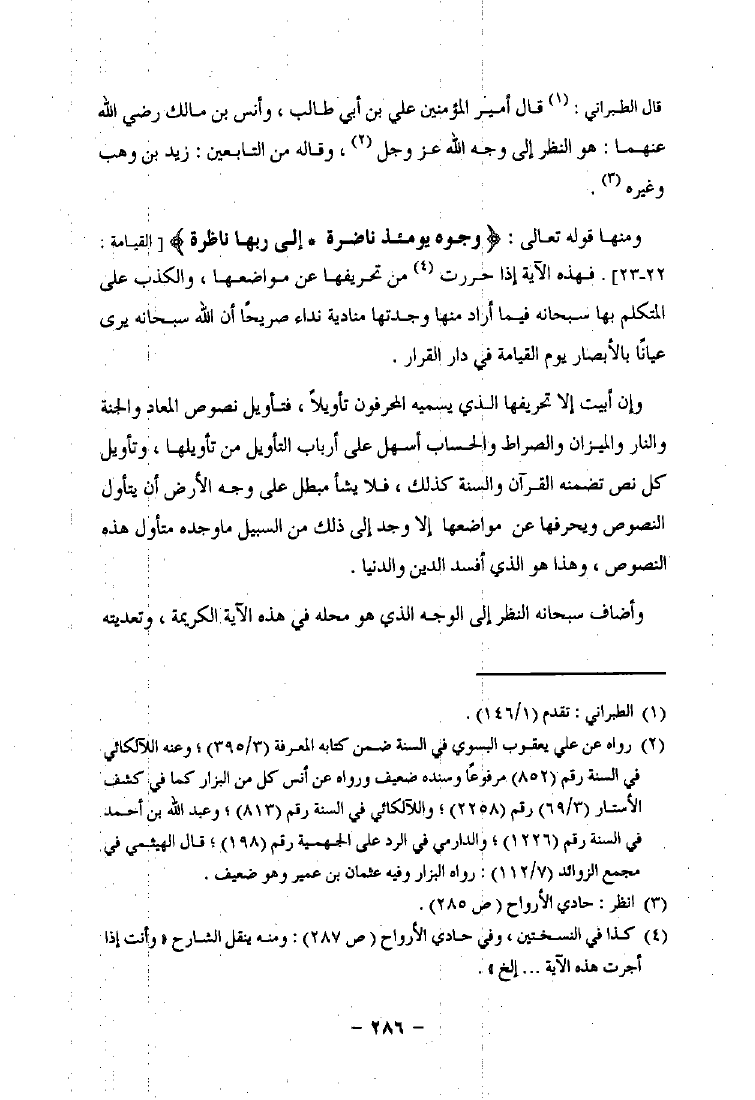 قال الطبراني : (١) قال أمير المؤمنين علي بن أبي طالب ، وأنس بن مالك رضي الله
عنهما : هو النظر إلى وجه الله عز وجل (٢) ، وقاله من التابعين : زيد بن وهب
وغيره (٣) .
ومنها قوله تعالى : ﴿ وجوه يومئذ ناضرة * إلى ربها ناظرة ﴾ [ القيامة :
٢٢-٢٣] . فهذه الآية إذا حررت (٤) من تحريفها عن مواضعها ، والكذب على
المتكلم بها سبحانه فيما أراد منها وجدتها منادية نداء صريحًا أن الله سبحانه يرى
عيانًا بالأبصار يوم القيامة في دار القرار .
وإن أبيت إلا تحريفها الذي يسميه المحرفون تأويلاً ، فتأويل نصوص المعاد والجنة
والنار والميزان والصراط والحساب أسهل على أرباب التأويل من تأويلها ، وتأويل
كل نص تضمنه القرآن والسنة كذلك ، فلا يشأ مبطل على وجه الأرض أن يتأول
النصوص ويحرفها عن مواضعها إلا وجد إلى ذلك من السبيل ماوجده متأول هذه
النصوص ، وهذا هو الذي أفسد الدين والدنيا .
وأضاف سبحانه النظر إلى الوجه الذي هو محله في هذه الآية الكريمة ، وتعديته
(١) الطبراني : تقدم (١٤٦/١) .
(٢) رواه عن علي يعقوب البسوي في السنة ضمن كتابه المعرفة (٣٩٥/٣) ؛ وعنه اللآلكائي
في السنة رقم (٨٥٢) مرفوعًا وسنده ضعيف ورواه عن أنس كل من البزار كما في كشف
الأستار (٦٩/٣) رقم (٢٢٥٨) ؛ واللآلكائي في السنة رقم (٨١٣) ؛ وعبد الله بن أحمد
في السنة رقم (١٢٢٦) ؛ والدارمي في الرد على الجهمية رقم (١٩٨) ؛ قال الهيثمي في
مجمع الزوائد (١١٢/٧) : رواه البزار وفيه عثمان بن عمير وهو ضعيف .
(٣) انظر : حادي الأرواح ( ص ٢٨٥) .
(٤) كذا في النسختين ، وفي حادي الأرواح ( ص ٢٨٧) : ومنه ينقل الشارح « وأنت إذا
أجرت هذه الآية ... إلخ » .
– ٢٨٦ –